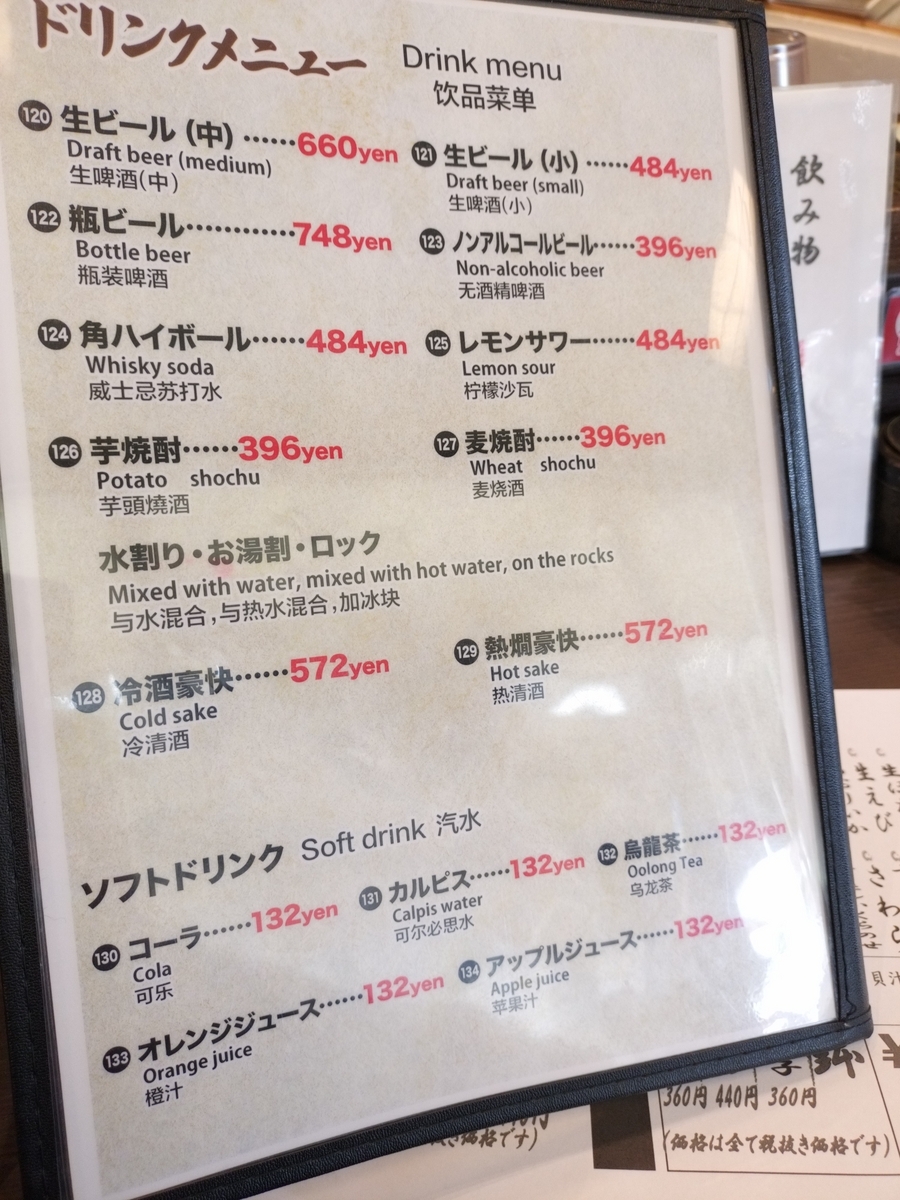 ドリンクメニュー Drink menu
饮品菜单
120 生ビール(中)……660yen
Draft beer (medium)
生啤酒(中)
121 生ビール(小)……484yen
Draft beer (small)
生啤酒(小)
122 瓶ビール…………748yen
Bottle beer
瓶装啤酒
123 ノンアルコールビール……396yen
Non-alcoholic beer
无酒精啤酒
124 角ハイボール……484yen
Whisky soda
威士忌苏打水
125 レモンサワー……484yen
Lemon sour
柠檬沙瓦
126 芋焼酎……396yen
Potato shochu
芋頭燒酒
127 麦焼酎……396yen
Wheat shochu
麦烧酒
水割り・お湯割・ロック
Mixed with water, mixed with hot water, on the rocks
与水混合,与热水混合,加冰块
128 冷酒豪快……572yen
Cold sake
冷清酒
129 熱燗豪快……572yen
Hot sake
热清酒
ソフトドリンク Soft drink 汽水
130 コーラ……132yen
Cola
可乐
131 カルピス……132yen
Calpis water
可尔必思水
132 烏龍茶……132yen
Oolong Tea
乌龙茶
133 オレンジジュース……132yen
Orange juice
橙汁
134 アップルジュース……132yen
Apple juice
苹果汁
飲み物
生えび
貝汁
360円 440円 360円
(価格は全て税抜き価格です)
き価格です)